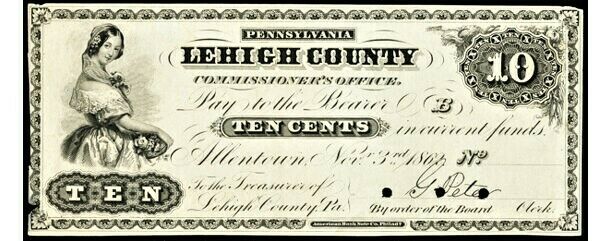 PENNSYLVANIA
LEHIGH COUNTY
COMMISSIONER'S OFFICE.
10
Pay to the Bearer B
TEN CENTS in current funds.
Allentown, Nov. 3rd 186 No
TEN
To the Treasurer of
Lehigh County, Pa.
G Peter
By order of the Board Clerk.
American Bank Note Co. Philada